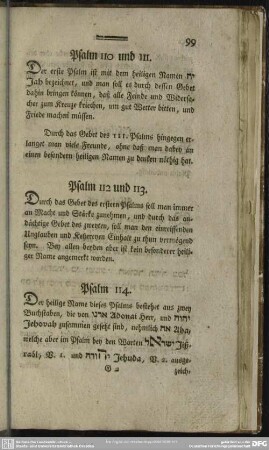 99
Psalm 110 und 111.
Der erste Psalm ist mit dem heiligen Namen יה
Jah bezeichnet, und man soll es durch dessen Gebet
dahin bringen können, daß alle Feinde und Widersa-
cher zum Kreuze kriechen, um gut Wetter bitten, und
Friede machen müssen.
Durch das Gebet des 111. Psalms hingegen er-
langet man viele Freunde, ohne daß man dabey an
einen besondern heiligen Namen zu denken nöthig hat.
Psalm 112 und 113.
Durch das Gebet des erstern Psalms soll man immer
an Macht und Stärke zunehmen, und durch das an-
dächtige Gebet des zweyten, soll man den einreissenden
Unglauben und Ketzereyen Einhalt zu thun vermögend
seyn. Bey allen beyden aber ist kein besonderer heili-
ger Name angemerkt worden.
Psalm 114.
Der heilige Name dieses Psalms bestehet aus zwey
Buchstaben, die von אדני Adonai Herr, und יהוה
Jehovah zusammen gesetzt sind, nehmlich אה Aha,
welche aber im Psalm bey den Worten ישראל Jiß-
raël, V. 1. und יהודה Jehuda, V. 2. ausge-
G 2
zeich-